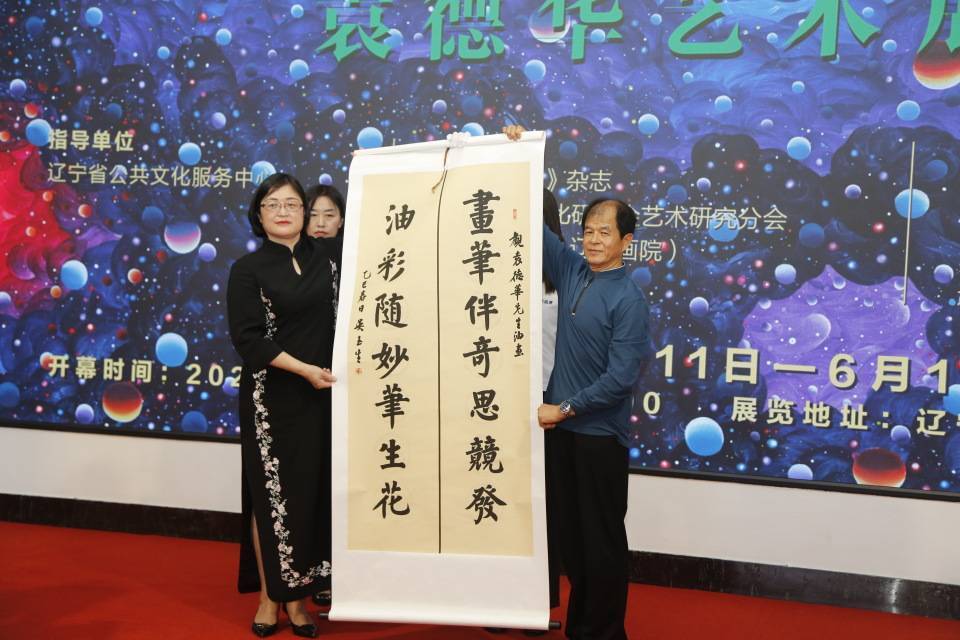 袁德华艺术展
指导单位
辽宁省公共文化服务中心
》杂志
艺术研究分会
画院）
開幕时间：202
11日—6月1
0 展览地址：辽宁
畫筆伴奇思競發
觀袁德華先生油画
油彩随妙筆生花
乙巳春日吴玉生